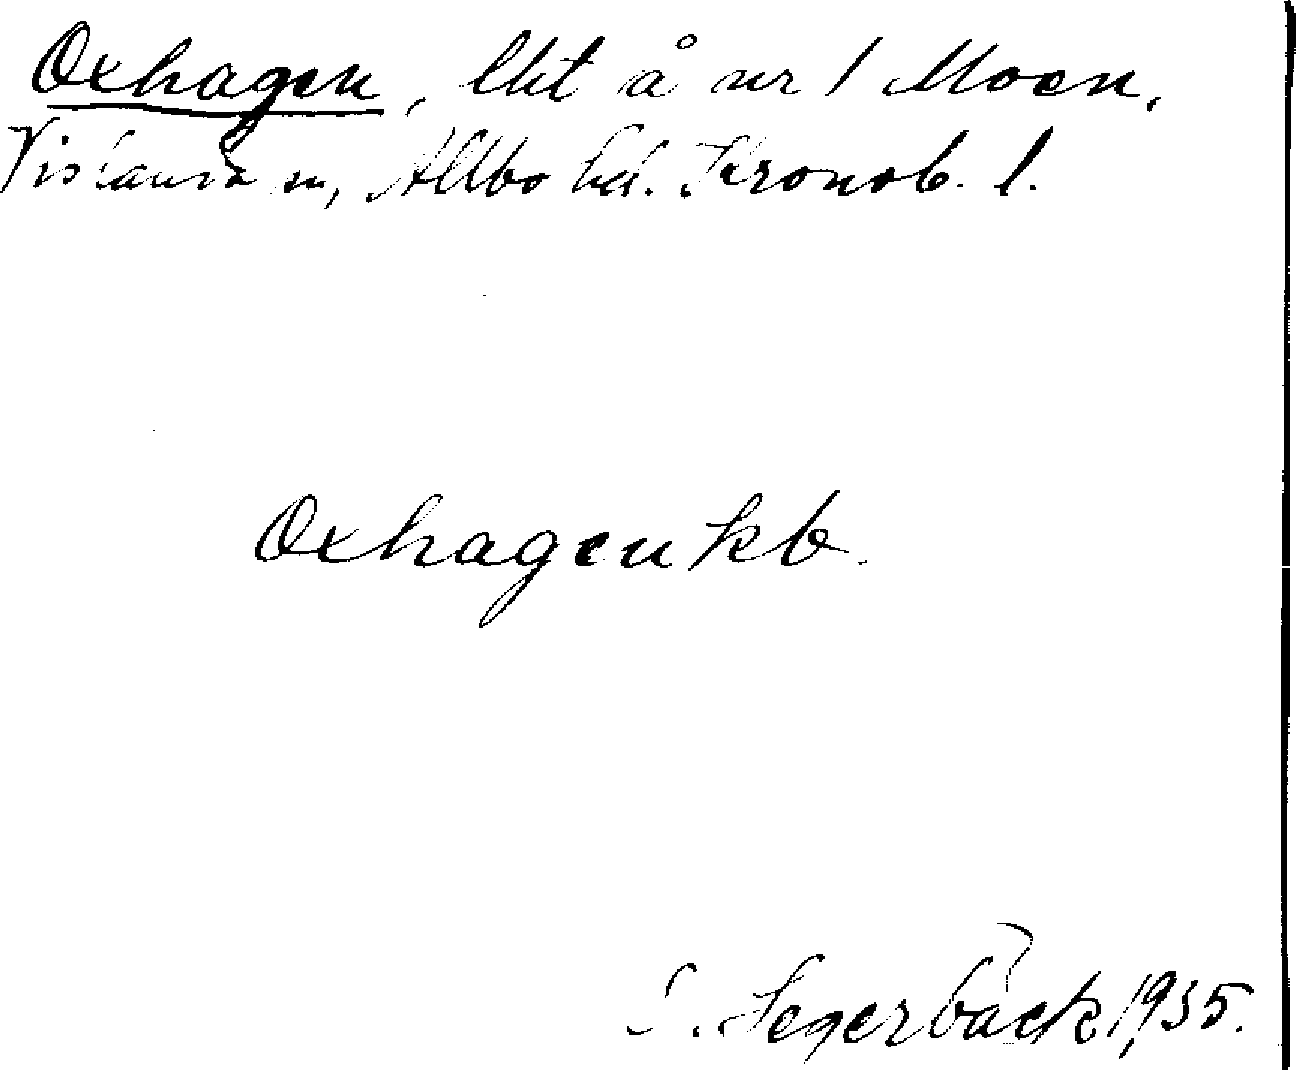 Oxhagen, lht å nr 1 Moen,
Vislanda sn, Allbo hd. Kronob. l.
Oxhagen kb.
S. Segerbäck 1935.